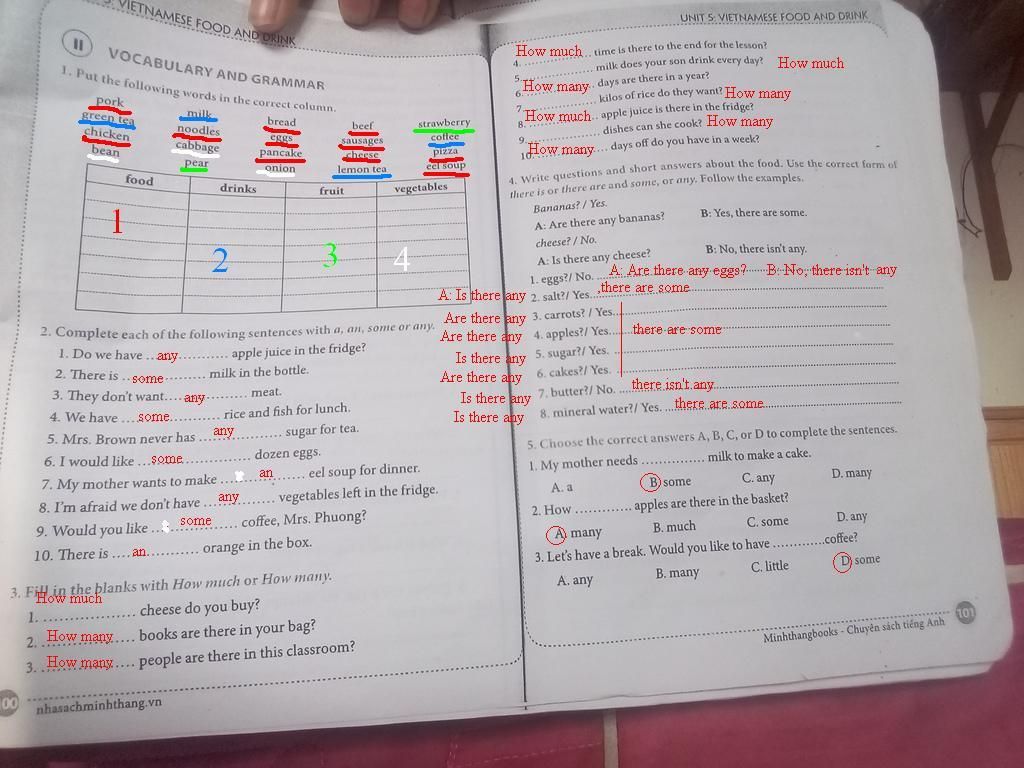 5: VIETNAMESE FOOD AND DRINK
II
VOCABULARY AND GRAMMAR
1. Put the following words in the correct column.
pork milk bread beef strawberry
green tea noodles eggs sausages coffee
chicken cabbage pancake cheese pizza
bean pear onion lemon tea eel soup
food drinks fruit vegetables
1 2 3 4
2. Complete each of the following sentences with a, an, some or any.
1. Do we have ..any............ apple juice in the fridge?
2. There is ..some.......... milk in the bottle.
3. They don't want....any.......... meat.
4. We have ...some............ rice and fish for lunch.
5. Mrs. Brown never has ....any.......... sugar for tea.
6. I would like ...some............ dozen eggs.
7. My mother wants to make .... an ...... eel soup for dinner.
8. I'm afraid we don't have ....any......... vegetables left in the fridge.
9. Would you like ... some ......... coffee, Mrs. Phuong?
10. There is ....an............ orange in the box.
3. Fill in the blanks with How much or How many.
How much
1. ..................... cheese do you buy?
2. How many .... books are there in your bag?
3. How many .... people are there in this classroom?
00
nhasachminhthang.vn
UNIT 5: VIETNAMESE FOOD AND DRINK
4. How much .. time is there to the end for the lesson?
5. .................. milk does your son drink every day? How much
6. How many .. days are there in a year?
7. .................. kilos of rice do they want? How many
8. How much .. apple juice is there in the fridge?
9. .................. dishes can she cook? How many
10. How many .... days off do you have in a week?
4. Write questions and short answers about the food. Use the correct form of
there is or there are and some, or any. Follow the examples.
Bananas? / Yes.
A: Are there any bananas? B: Yes, there are some.
cheese? / No.
A: Is there any cheese? B: No, there isn't any.
1. eggs?/ No. A: Are there any eggs? B: No, there isn't any
A: Is there any 2. salt?/ Yes. there are some
Are there any 3. carrots? / Yes.
Are there any 4. apples?/ Yes. there are some
Is there any 5. sugar?/ Yes.
Are there any 6. cakes?/ Yes.
Is there any 7. butter?/ No. there isn't any
Is there any 8. mineral water?/ Yes. there are some
5. Choose the correct answers A, B, C, or D to complete the sentences.
1. My mother needs ............... milk to make a cake.
A. a B. some C. any D. many
2. How ............... apples are there in the basket?
A. many B. much C. some D. any
3. Let's have a break. Would you like to have ............coffee?
A. any B. many C. little D. some
101
Minhthangbooks - Chuyên sách tiếng Anh